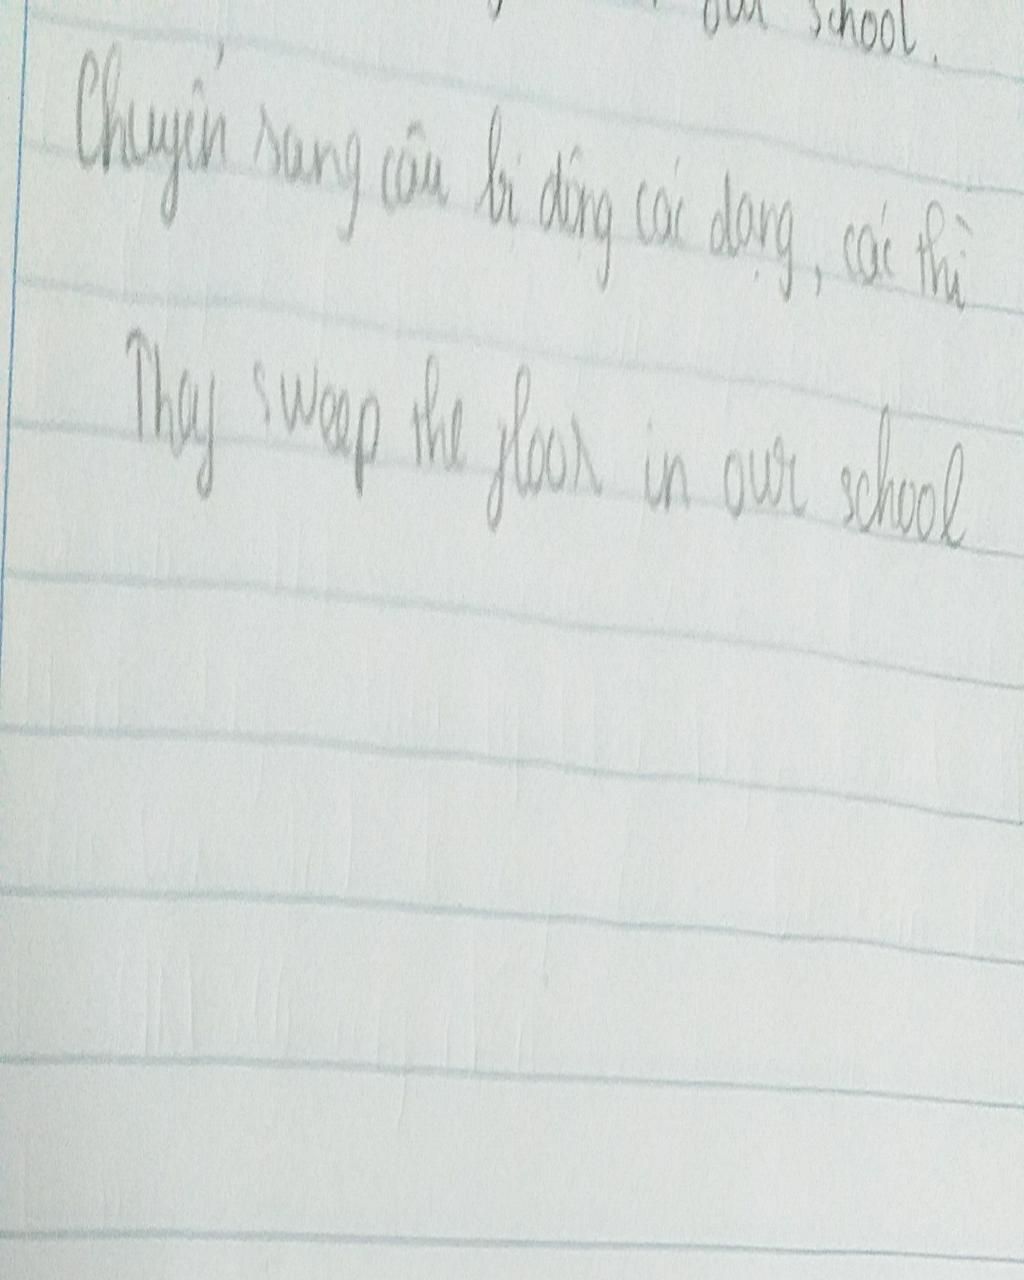 our school.
Chuyển sang câu bị động các dạng, các thì
They sweep the floor in our school